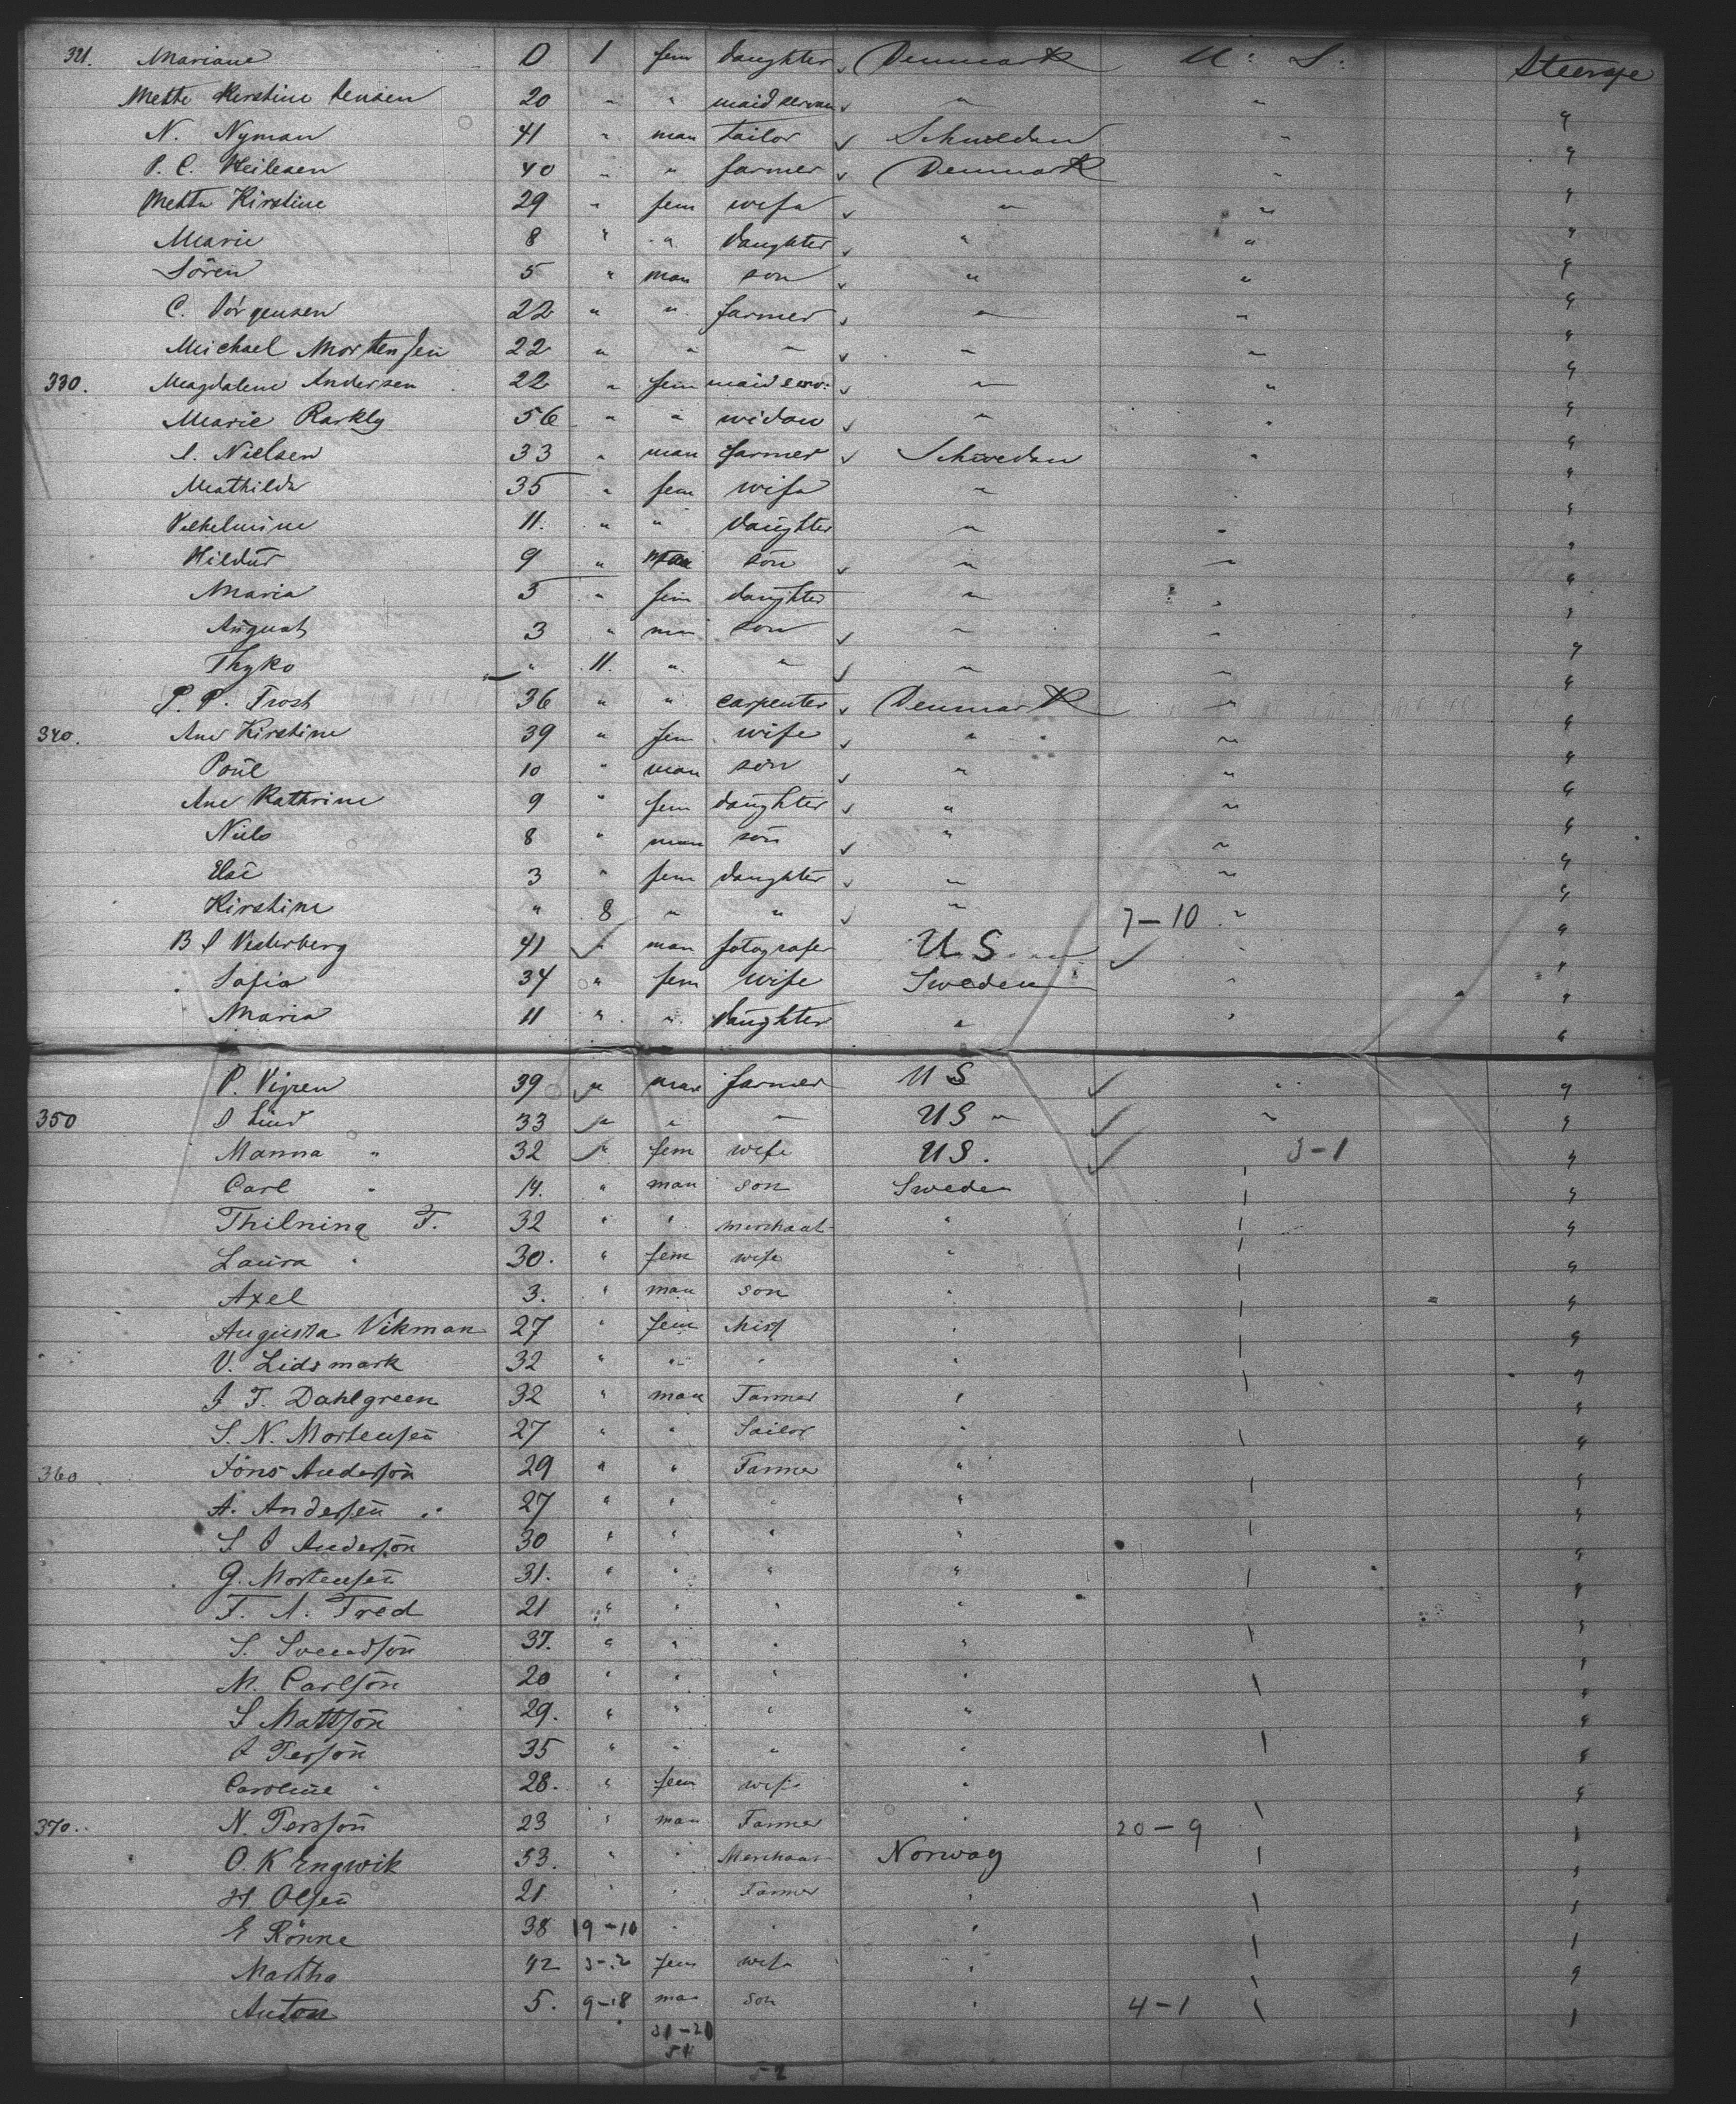 321. Mariane 0 1 fem daughter Denmark U: S: Steerage
Mette Kirstine Jensen 20 " " maid servan " " "
N. Nyman 41 " man tailor Schweden " "
P. C. Heilesen 40 " " farmer Denmark " "
Mette Kirstine 29 " fem wife " " "
Marie 8 " " daughter " " "
Sören 5 " man son " " "
C. Jörgensen 22 " " farmer " " "
Michael Mortensen 22 " " " " " "
330. Magdalene Andersen 22 " fem maid serv: " " "
Marie Rarkly 56 " " widow " " "
J. Nielsen 33 " man farmer Schwedan " "
Mathilda 35 " fem wife " "
Vilhelmine 11. " " daughter " " "
Hildur 9 " man son " " "
Maria 5 " fem daughter " " "
August 3 " man son " " "
Thyko " 11. " " " " "
P. P. Frost 36 " " carpenter Denmark " "
340. Ane Kirstine 39 " fem wife " " "
Poul 10 " man son " " "
Ane Kathrine 9 " fem daughter " " "
Niels 8 " man son " " "
Else 3 " fem daughter " " "
Kirstine " 8 " " " 7-10 " "
B J Vesterberg 41 " man fotografer U S " "
Sofia 34 " fem wife Sweden " "
Maria 11 " " daughter " " "
P. Vigren 39 " man farmer U S " "
350 J Lind 33 " " " U S " " "
Manna " 32 " fem wife U S. 3-1 "
Carl " 14. " man son Sweden "
Thilning F. 32 " " merchant " "
Laura " 30. " fem wife " "
Axel 3. " man son " "
Augusta Vikman 27 " fem Miss " "
V. Lidsmark 32 " " " " "
J F. Dahlgreen 32 " man Farmer " "
S. N. Mortensen 27 " " Sailor " "
360 Jöns Anderson 29 " " Farmer " "
A. Andersen 27 " " " " "
S J Anderson 30 " " " " "
G. Mortensen 31. " " " " "
F. A. Fred 21 " " " " "
S. Svendson 37. " " " " "
M. Carlson 20 " " " " "
S Mattson 29. " " " " "
J Person 35 " " " " "
Caroline " 28. " fem wife " "
370. N. Persson 23 " man Farmer " 20-9 "
O. K Engwik 53. " " Merchant Norway "
H. Olsen 21 " " Farmer " "
E Rönne 38 19-10 " " " "
Martha 42 3-2 fem wife " "
Anton 5. 9-18 man son " 4-1 "
31-21
54